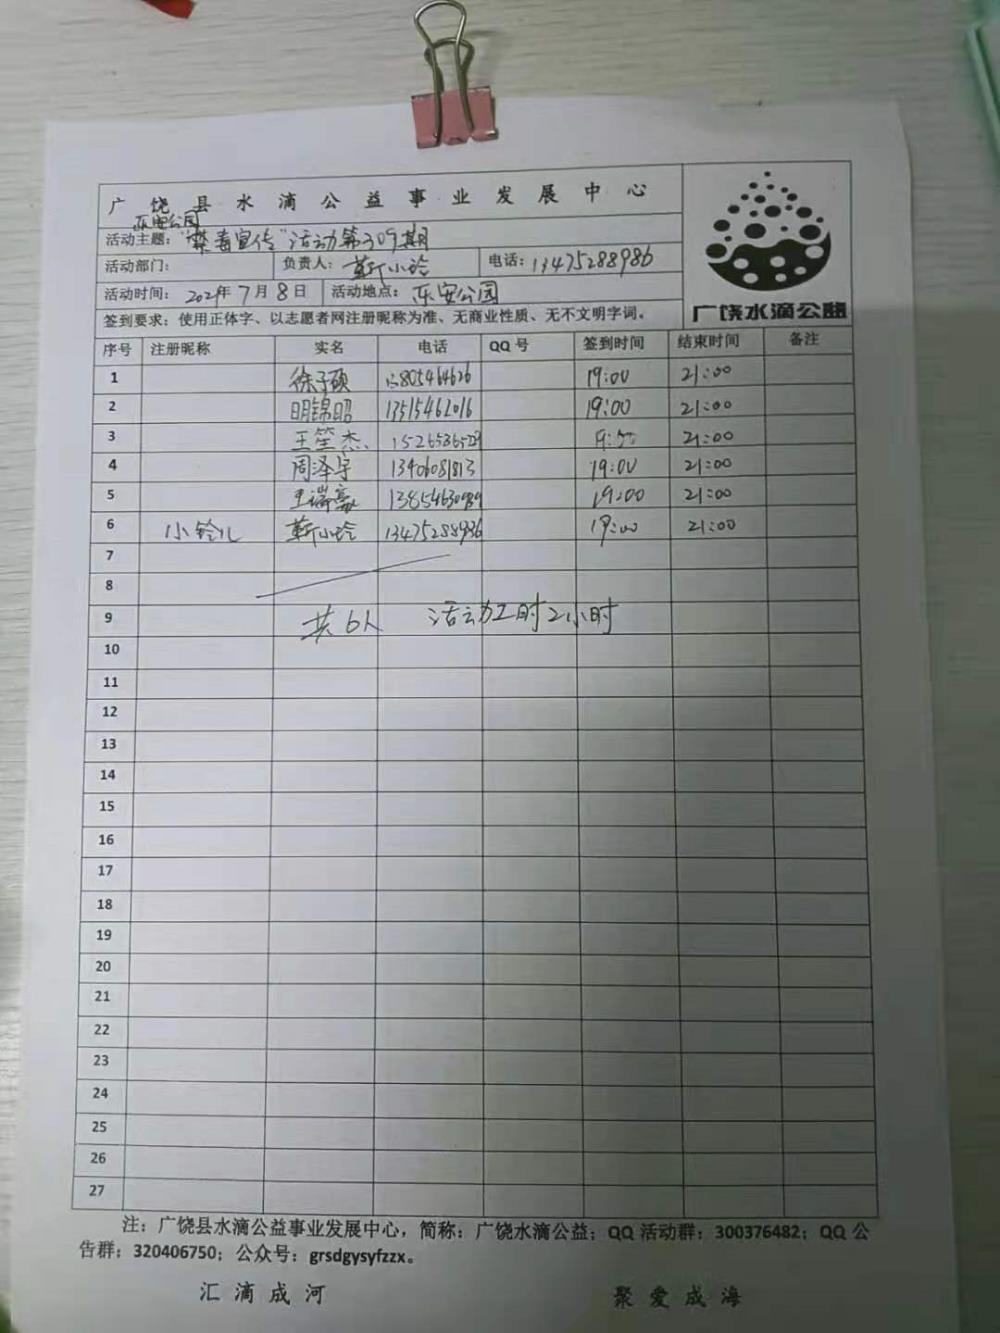 广饶县水滴公益事业发展中心
乐安公园
活动主题：“禁毒宣传”活动第309期
活动部门： 负责人：靳小玲 电话：13475288986
活动时间：2021年7月8日 活动地点：乐安公园
签到要求：使用正体字、以志愿者网注册昵称为准、无商业性质、无不文明字词。
广饶水滴公益
序号 注册昵称 实名 电话 QQ号 签到时间 结束时间 备注
1 徐子硕 15805464626 19:00 21:00
2 明锦昭 13515462016 19:00 21:00
3 王笙杰 21:00
4 周泽宇 13406081813 19:00 21:00
5 王瑞豪 19:00 21:00
6 小铃儿 靳小玲 13475288986 19:00 21:00
7
8
9 共6人 活动工时2小时
10
11
12
13
14
15
16
17
18
19
20
21
22
23
24
25
26
27
注：广饶县水滴公益事业发展中心，简称：广饶水滴公益；QQ活动群：300376482；QQ公
告群：320406750；公众号：grsdgysyfzzx。
汇滴成河 聚爱成海